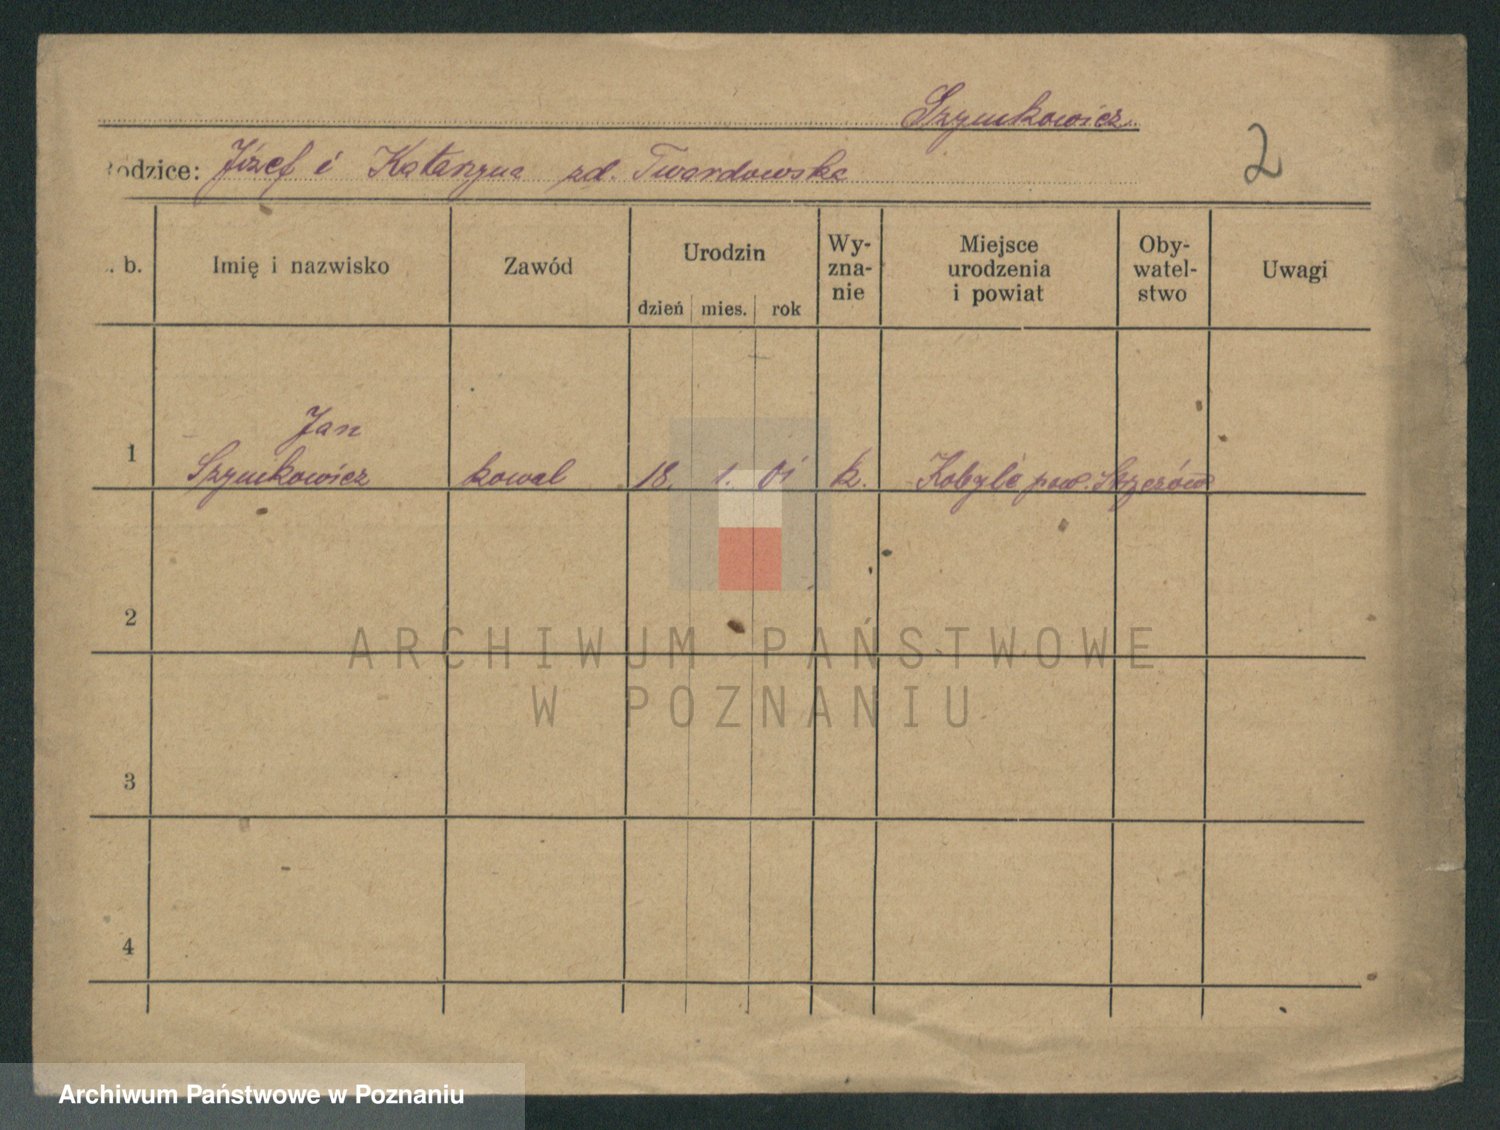 Szymkowicz
Rodzice: Józef i Katarzyna zd. Twardowska
2
. b. Imię i nazwisko Zawód Urodzin Wy- Miejsce Oby- Uwagi
zna- urodzenia watel-
nie i powiat stwo
dzień mies. rok
Jan
1 Szymkowicz kowal 18. 1. 01 k. pow.
2
ARCHIWUM PAŃSTWOWE
W POZNANIU
3
4
Archiwum Państwowe w Poznaniu